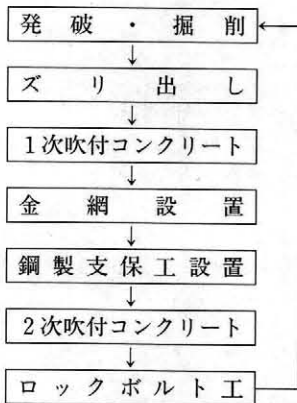 発破・掘削
ズリ出し
1次吹付コンクリート
金網設置
鋼製支保工設置
2次吹付コンクリート
ロックボルト工